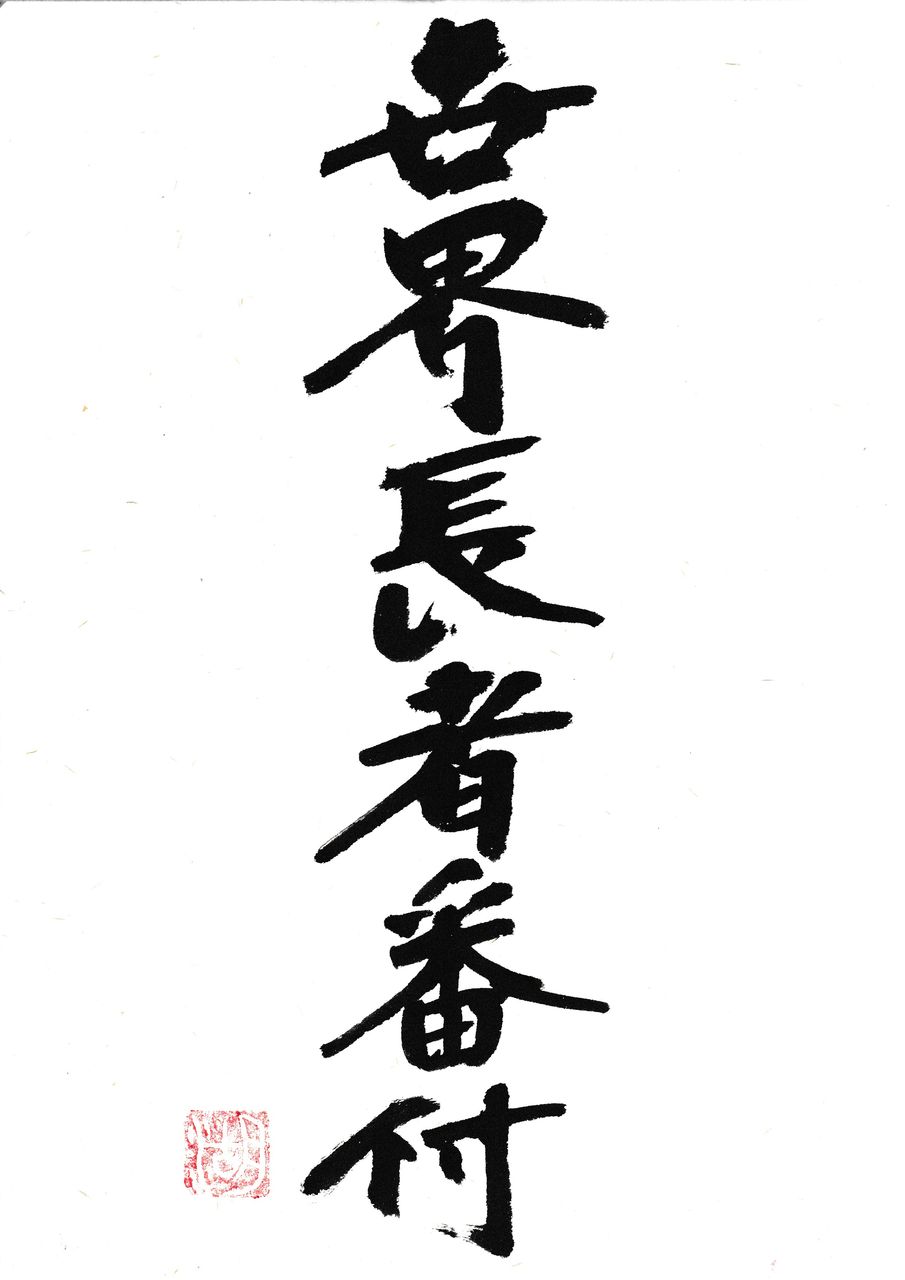 世界長い者番付